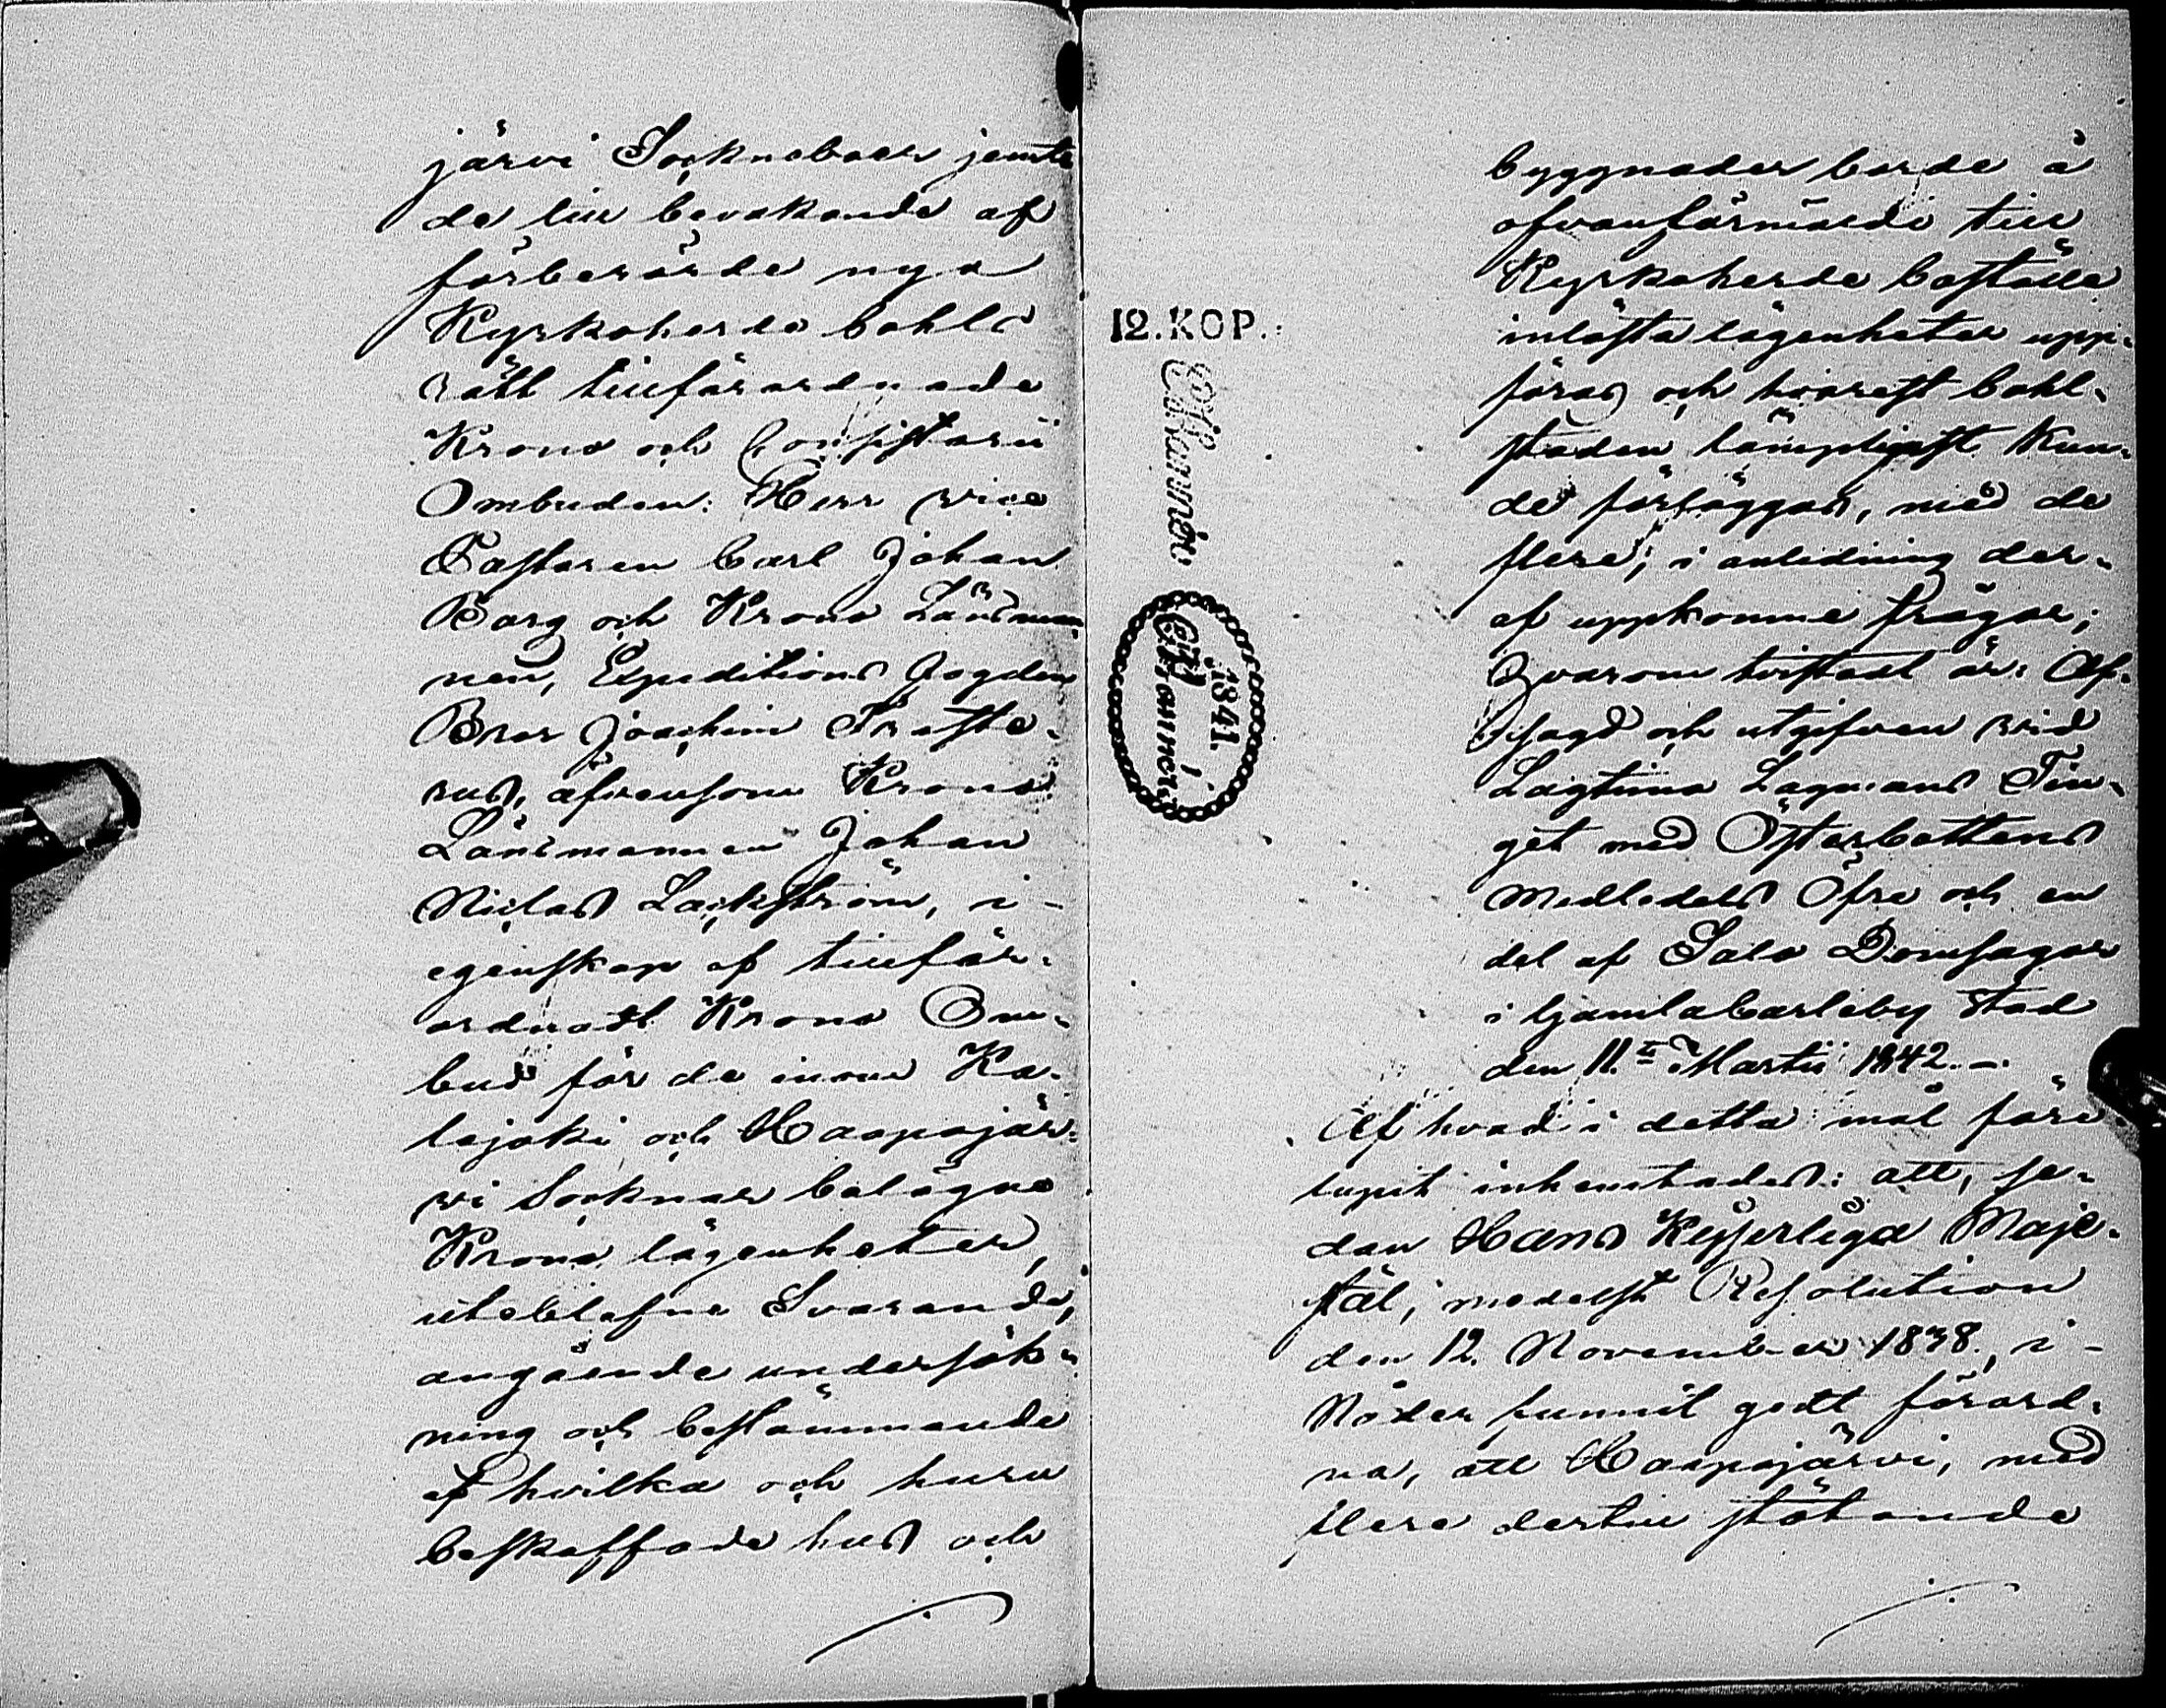 järvi Sockneboer jemte
de till bevakande af
förberörde nya
Kyrkoherde bohls
rätt tillförordnade
Krono och Consistorii
Ombuden: Herr vice
Pastoren Carl Johan
Borg och Krono Länsman-
nen, Expeditions Fogden
Bror Joachim Traste-
rus, äfvensom Krono
Länsmannen Johan
Niclas Lackström, i
egenskap af tillför-
ordnadt Krono Om-
bud för de innom Ka-
lajoki och Haapajär-
vi Socknar belägne
Krono lägenheter,
uteblefne Svarande,
angående undersök-
ning och bestämmande
af hvilka och huru
beskaffade hus och
12. KOP.
1841.
byggnader borde å
ofvanförmälde till
Kyrkoherde boställe
inlösta lägenheter upp-
föras och hvarest bohl-
staden lämpligast kun-
de förläggas, med de
flere, i anledning der-
af uppkomne frågor;
Hvarom tvistadt är: Af-
sagd och utgifven vid
Lagtima Lagmans Tin-
get med Österbottens
Medledels Öfre och en
del af Salo Domsagor
i Gamlacarleby Stad
den 11.te Martii 1842.-
Af hvad i detta mål före-
lupit inhemtades: att, se-
dan Hans Kejserliga Maje-
stät, medelst Resolution
den 12. November 1838., i
Nåder funnit godt förord-
na, att Haapajärvi, med
flere dertill stötande